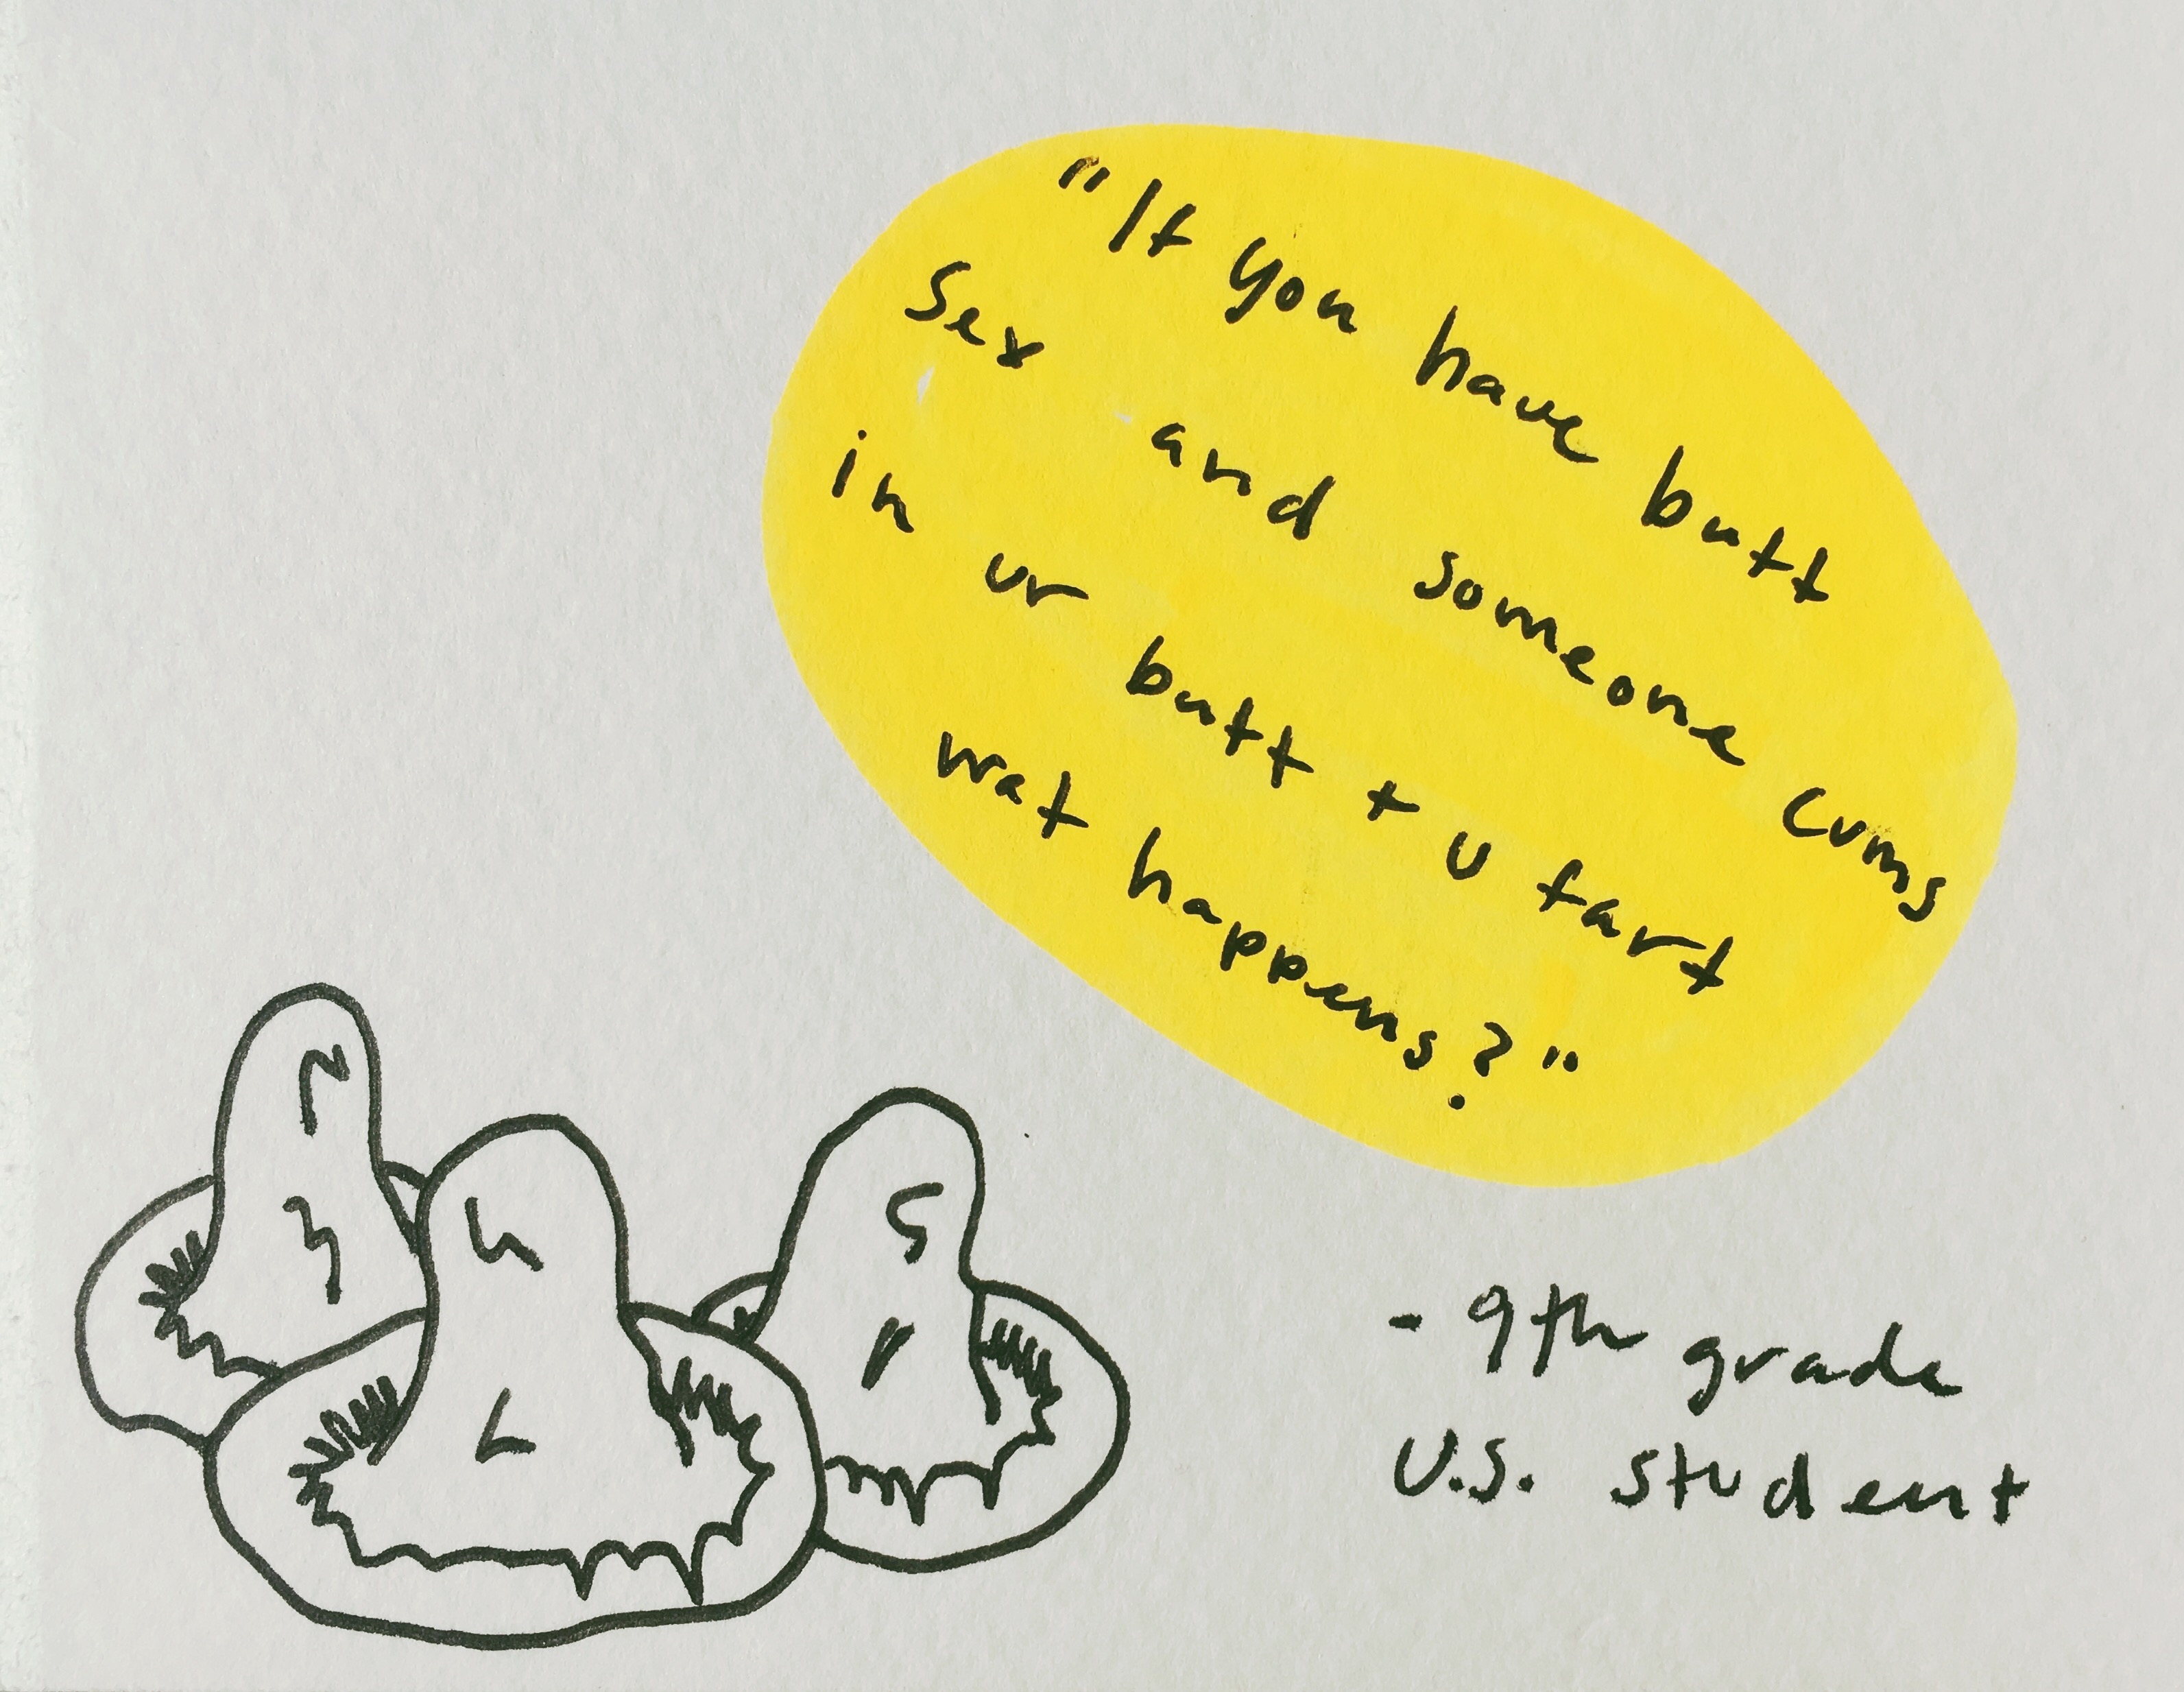 "If you have butt
sex and someone cums
in ur butt + u fart
wat happens?"
- 9th grade
U.S. student